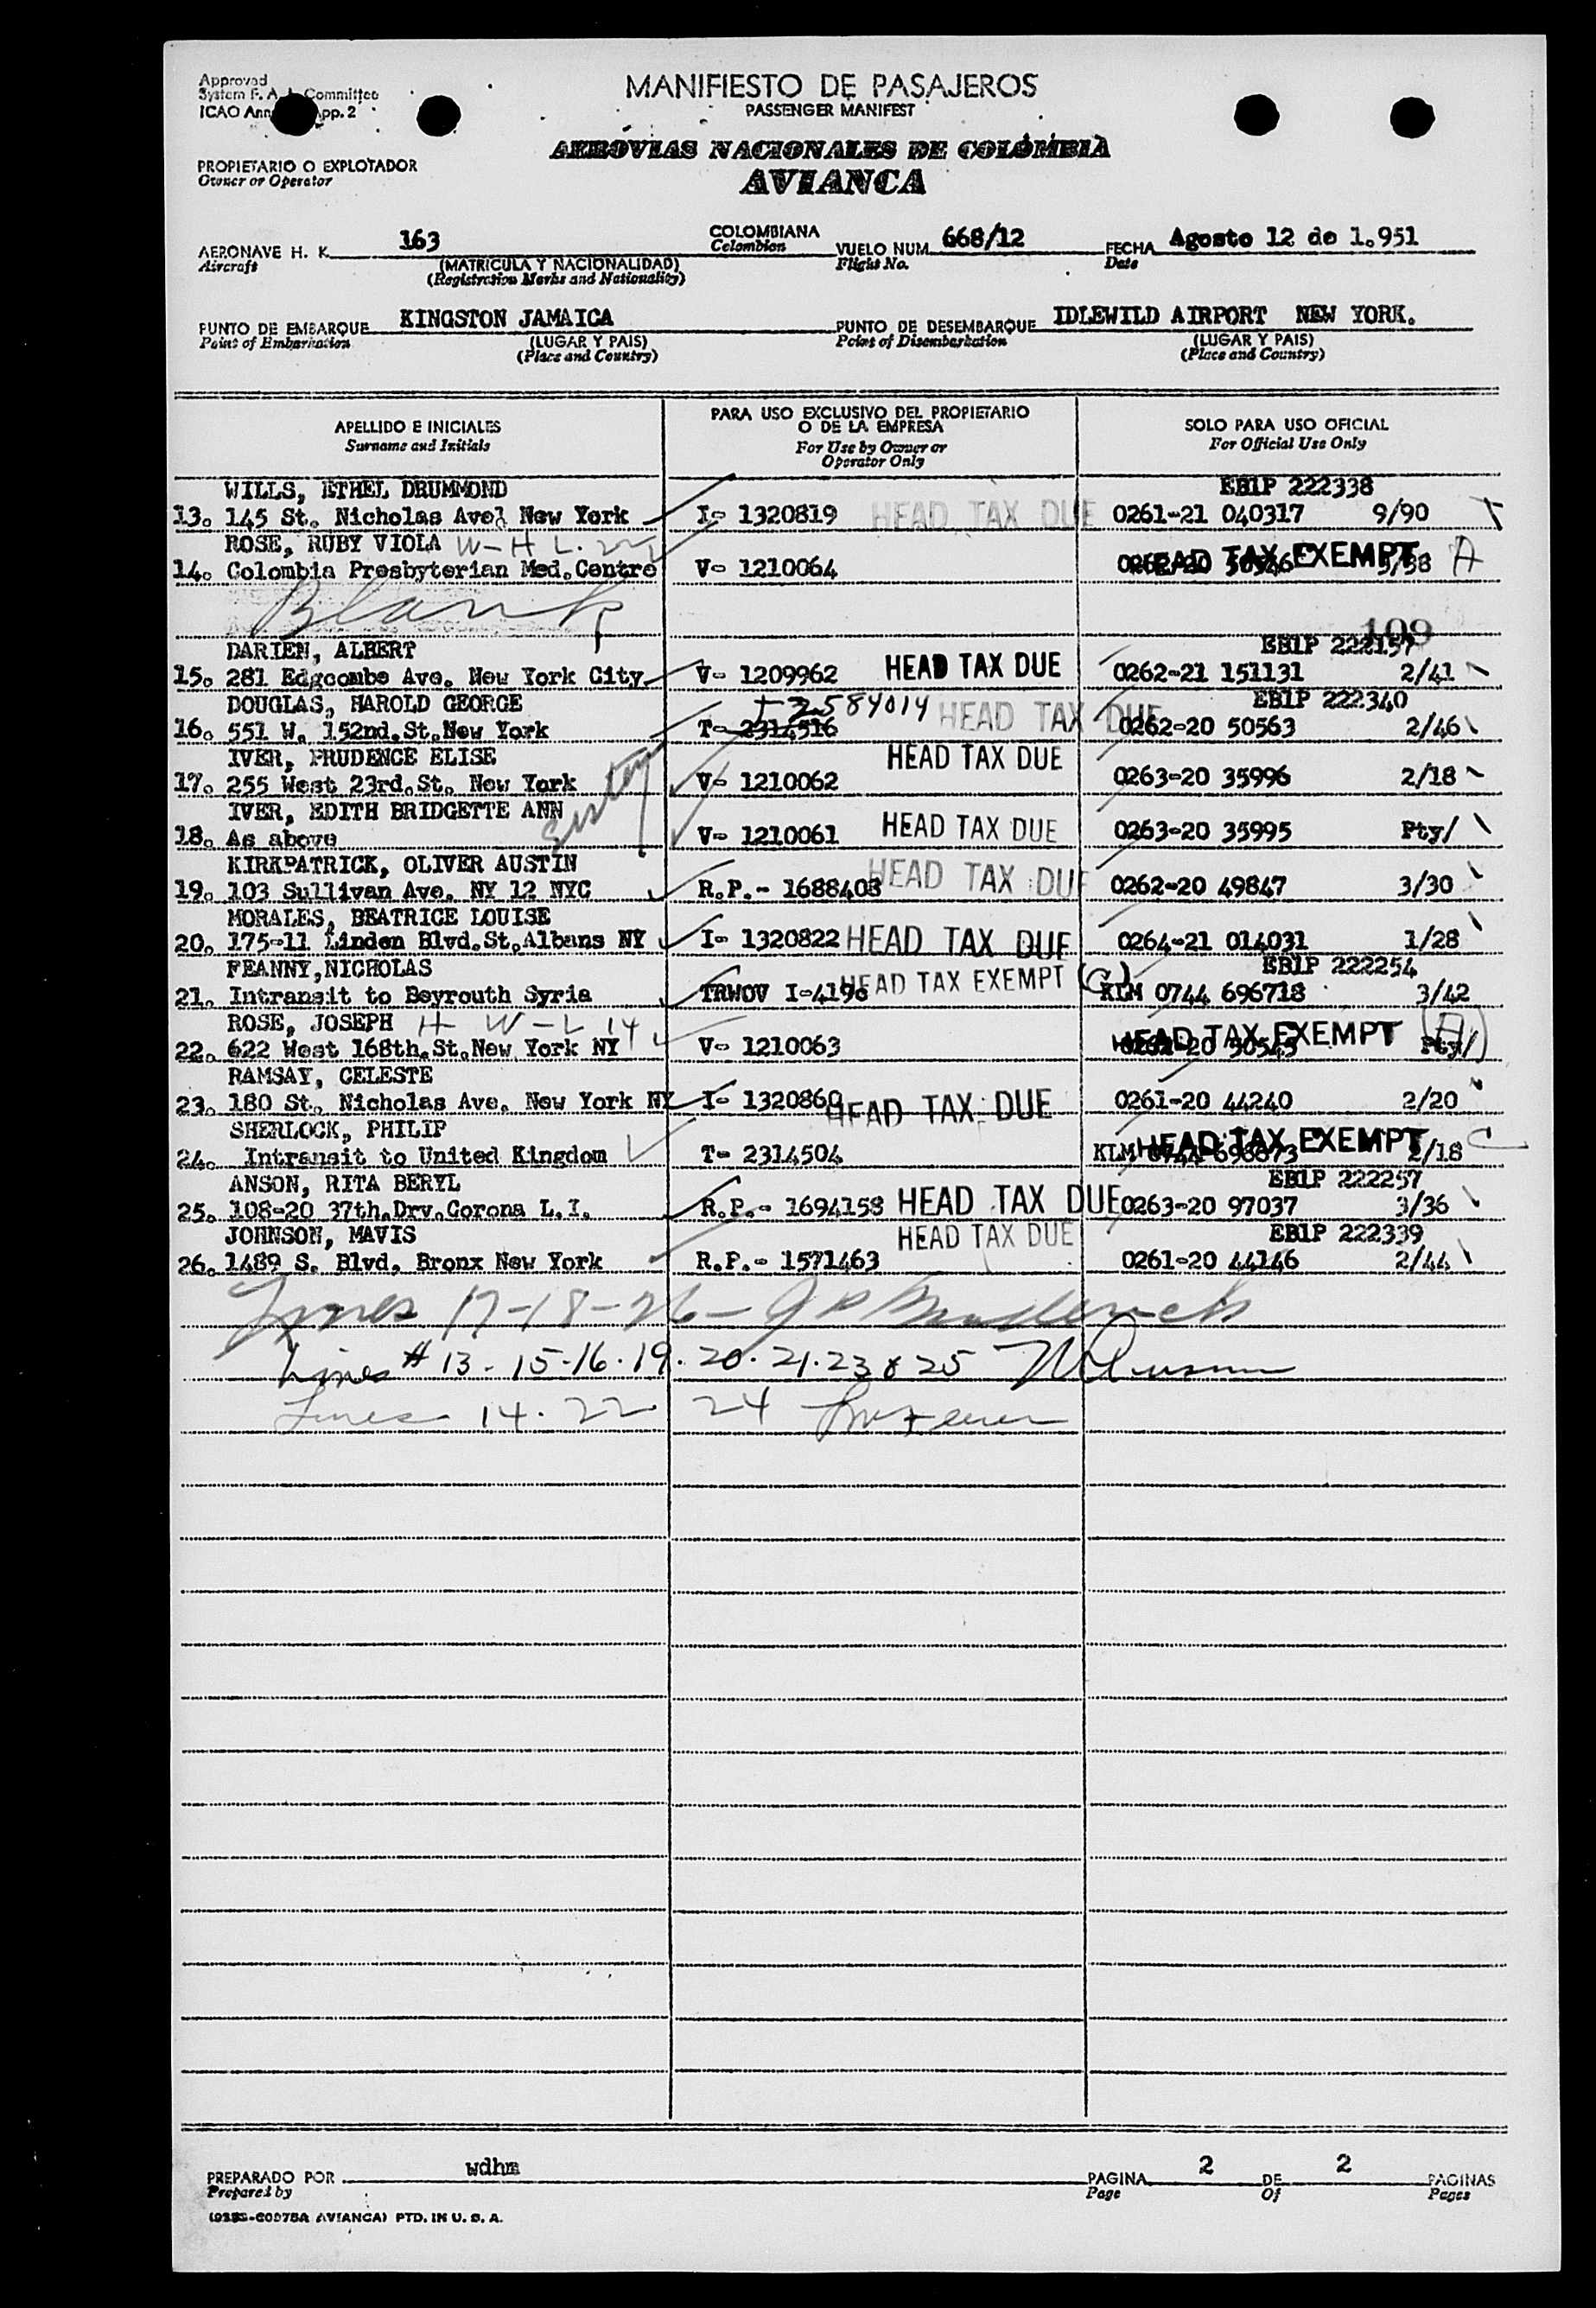 Approved
System F. A. L. Committee
ICAO Ann pp. 2
MANIFIESTO DE PASAJEROS
PASSENGER MANIFEST
AEROVIAS NACIONALES DE COLOMBIA
AVIANCA
PROPIETARIO O EXPLOTADOR
Owner or Operator
AERONAVE H. K. 163 COLOMBIANA VUELO NUM. 668/12 FECHA Agosto 12 de 1.951
Aircraft (MATRICULA Y NACIONALIDAD) Colombian Flight No. Date
(Registration Marks and Nationality)
PUNTO DE EMBARQUE KINGSTON JAMAICA PUNTO DE DESEMBARQUE IDLEWILD AIRPORT NEW YORK.
Point of Embarkation (LUGAR Y PAIS) Point of Disembarkation (LUGAR Y PAIS)
(Place and Country) (Place and Country)
APELLIDO E INICIALES PARA USO EXCLUSIVO DEL PROPIETARIO O DE LA EMPRESA SOLO PARA USO OFICIAL
Surname and Initials For Use by Owner or Operator Only For Official Use Only
WILLS, ETHEL DRUMMOND EB1P 222338
13. 145 St. Nicholas Ave. New York I- 1320819 HEAD TAX DUE 0261-21 040317 9/90
ROSE, RUBY VIOLA W-H L. 22
14. Colombia Presbyterian Med.Centre V- 1210064 HEAD TAX EXEMPT A
Blank
109
DARIEN, ALBERT EB1P 222157
15. 281 Edgecombe Ave. New York City V- 1209962 HEAD TAX DUE 0262-21 151131 2/41
DOUGLAS, HAROLD GEORGE T-2584014 EB1P 222340
16. 551 W. 152nd.St.New York T- 2314516 HEAD TAX DUE 0262-20 50563 2/46
IVER, PRUDENCE ELISE HEAD TAX DUE
17. 255 West 23rd.St. New York V- 1210062 0263-20 35996 2/18
IVER, EDITH BRIDGETTE ANN sisters
18. As above V- 1210061 HEAD TAX DUE 0263-20 35995 Pty/
KIRKPATRICK, OLIVER AUSTIN
19. 103 Sullivan Ave. NY 12 NYC R.P.- 1688403 HEAD TAX DUE 0262-20 49847 3/30
MORALES, BEATRICE LOUISE
20. 175-11 Linden Blvd.St.Albans NY I- 1320822 HEAD TAX DUE 0264-21 014031 1/28
FEANNY,NICHOLAS EB1P 222254
21. Intransit to Beyrouth Syria TRWOV I-4196 HEAD TAX EXEMPT (C) KLM 0744 696718 3/42
ROSE, JOSEPH H W-L 14
22. 622 West 168th.St.New York NY V- 1210063 HEAD TAX EXEMPT (A) Pty/
RAMSAY, CELESTE
23. 180 St. Nicholas Ave. New York NY I- 1320860 HEAD TAX DUE 0261-20 44240 2/20
SHERLOCK, PHILIP
24. Intransit to United Kingdom T- 2314504 KLM HEAD TAX EXEMPT 2/18 C
ANSON, RITA BERYL EB1P 222257
25. 108-20 37th.Drv.Corona L.I. R.P.- 1694158 HEAD TAX DUE 0263-20 97037 3/36
JOHNSON, MAVIS HEAD TAX DUE EB1P 222339
26. 1489 S. Blvd. Bronx New York R.P.- 1571463 0261-20 44146 2/44
Lines 17-18-26-
Lines # 13-15-16.19.20.21.23 & 25
Lines 14.22 24
PREPARADO POR wdhm PAGINA 2 DE 2 PAGINAS
Prepared by Page Of Pages
AVIANCA) PTD. IN U. S. A.